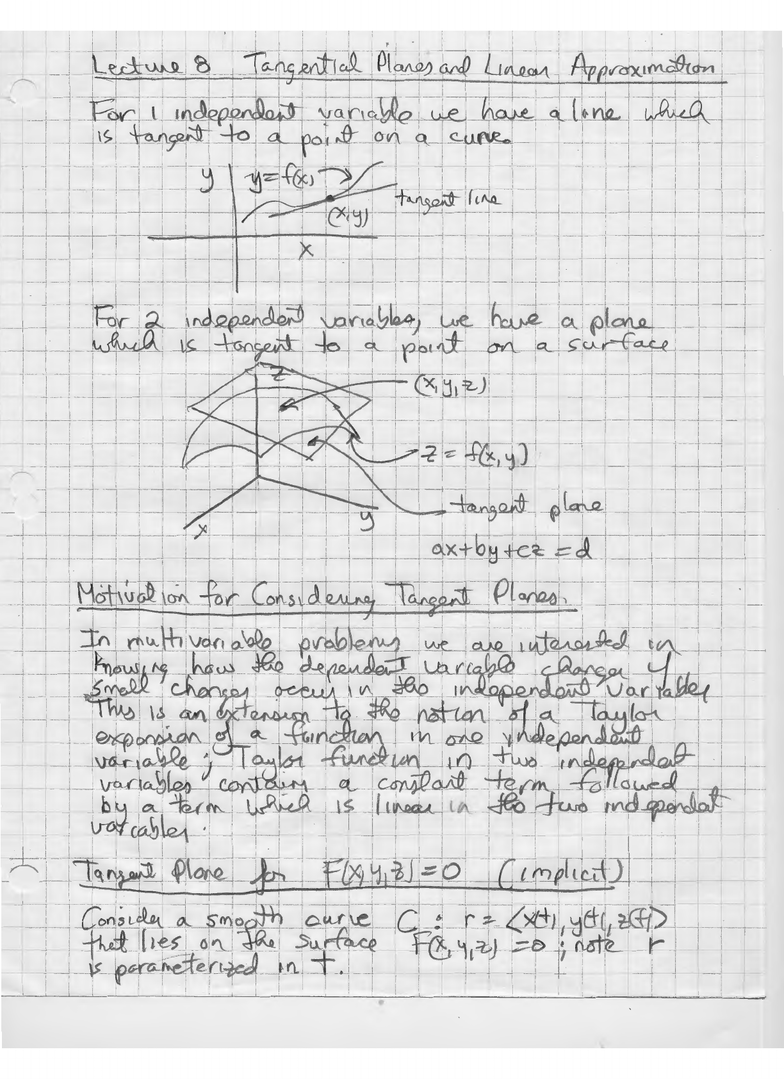 Lecture 8 Tangential Planes and Linear Approximation
For 1 independent variable we have a line which
is tangent to a point on a curve.
y
y=f(x)
tangent line
(x,y)
x
For 2 independent variables, we have a plane
which is tangent to a point on a surface
z
(x,y,z)
z = f(x,y)
tangent plane
x
y
ax+by+cz=d
Motivation for Considering Tangent Planes.
In multivariable problems we are interested in
knowing how the dependent variable changes if
small changes occur in the independent variables
This is an extension to the notion of a Taylor
expansion of a function in one independent
variable; Taylor function in two independent
variables contains a constant term followed
by a term which is linear in the two independat
variables.
Tangent Plane for F(x,y,z)=0 (implicit)
Consider a smooth curve C: r = <x(t), y(t), z(t)>
that lies on the surface F(x,y,z)=0; note r
is parameterized in t.